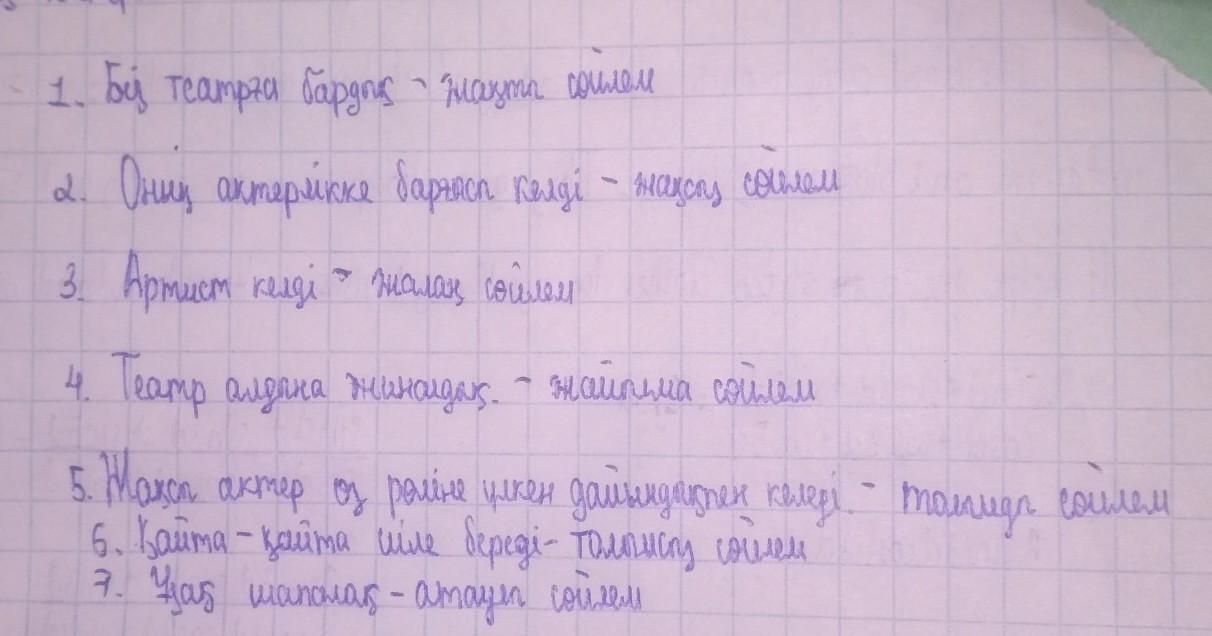 1. Біз театрға бардық - жақты сөйлем
2. Оның актерлікке барғысы келді - жақсыз сөйлем
3. Артист келді - жалаң сөйлем
4. Театр алдына жиналдық. - жайылма сөйлем
5. Жақсы актер өз рөліне үлкен дайындықпен келеді. - толымды сөйлем
6. Қайта-қайта іліле береді - толымсыз сөйлем
7. Ұзақ шапалақ - атаулы сөйлем